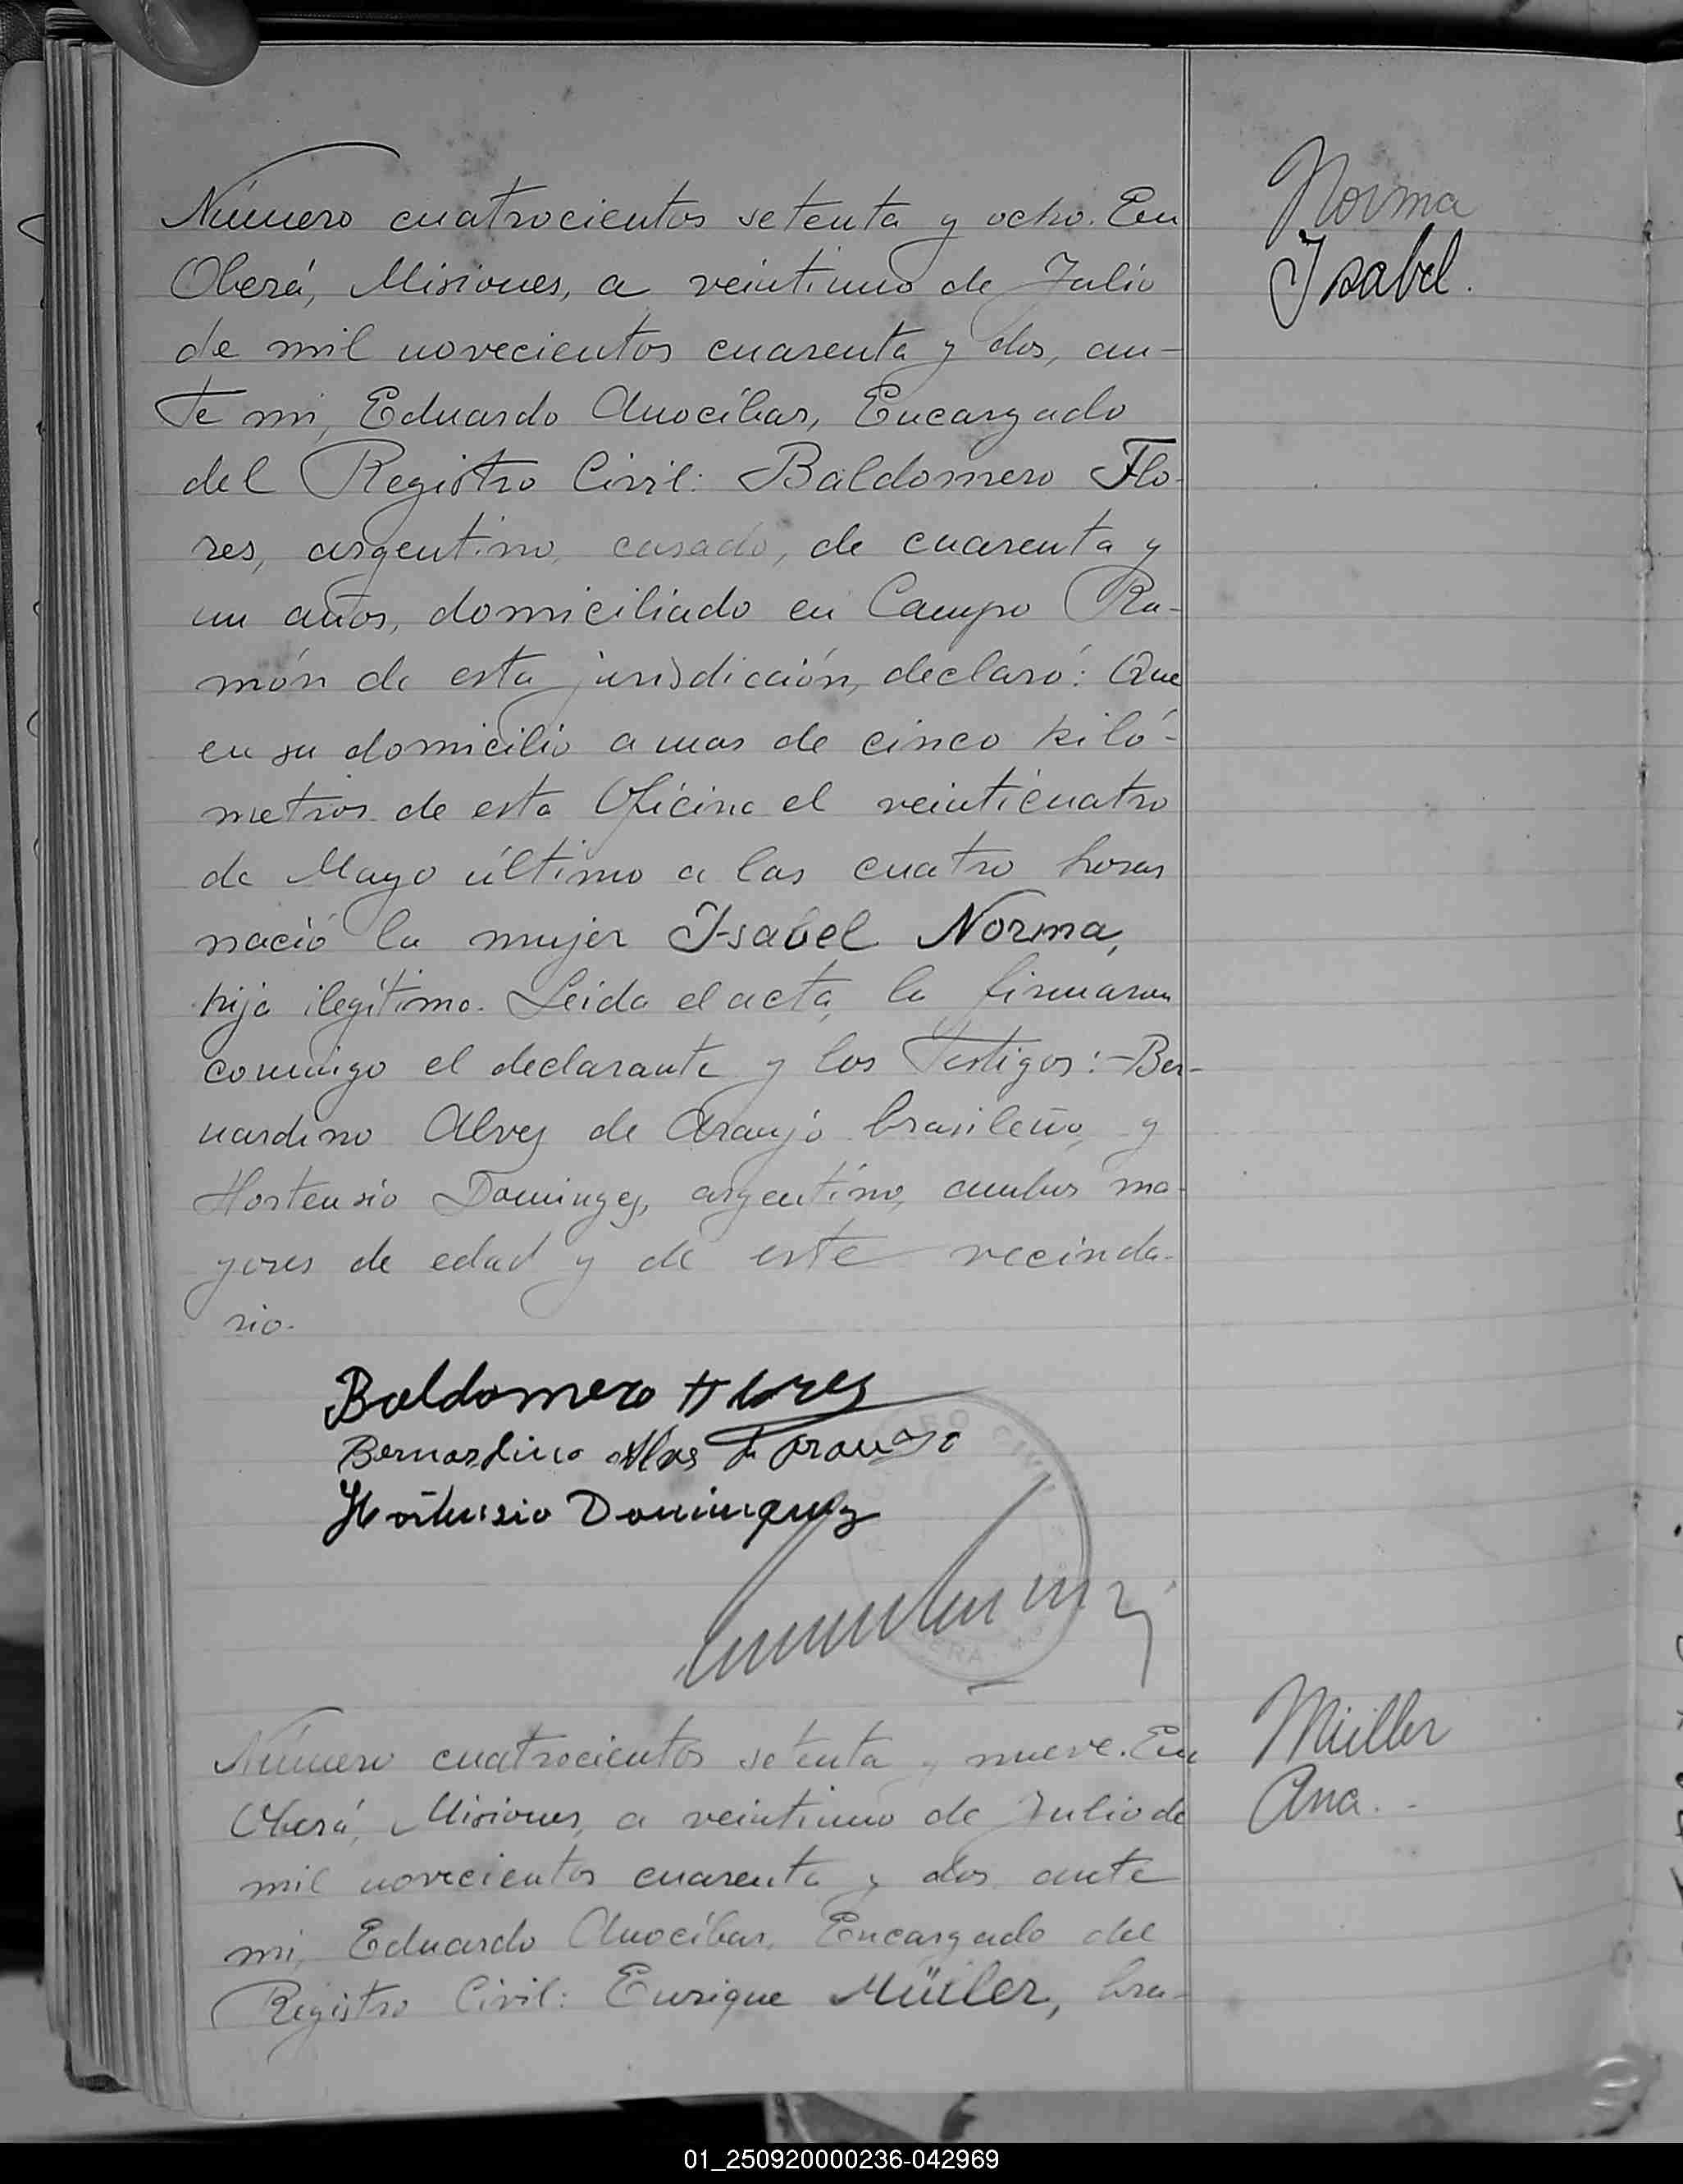 Norma
Isabel.
Número cuatrocientos setenta y ocho. En
Oberá, Misiones, a veintiuno de Julio
de mil novecientos cuarenta y dos, an-
te mi, Eduardo Anocíbar, Encargado
del Registro Civil: Baldomero Flo-
res, argentino, casado, de cuarenta y
un años, domiciliado en Campo Ra-
món de esta jurisdicción, declaró: Que
en su domicilio a mas de cinco kiló-
metros de esta Oficina el veinticuatro
de Mayo último a las cuatro horas
nació la mujer Isabel Norma,
hija ilegítima. Leida el acta, la firmaron
conmigo el declarante y los testigos: Ber-
nardino Alves de Araujo brasileño, y
Hortensio Dominguez, argentino, ambos ma-
yores de edad y de este vecinda-
rio.
Baldomero Flores
Bernardino Alves de Araujo
Hortensio Dominguez
Müller
Ana.
Número cuatrocientos setenta y nueve. En
Oberá, Misiones, a veintiuno de Julio de
mil novecientos cuarenta y dos ante
mi, Eduardo Anocíbar, Encargado del
Registro Civil: Enrique Müller, bra-
01_250920000236-042969